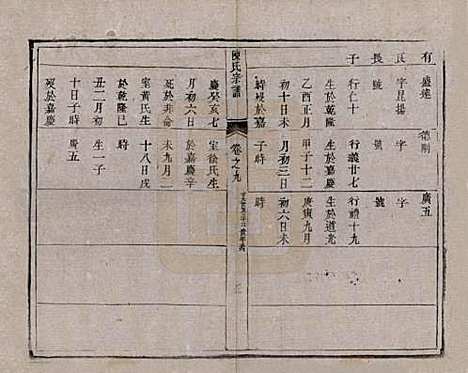 有
長
子
盛達
字昆揚
號
行仁十
生於乾隆
乙酉正月
初十日未
時歿於嘉
慶癸亥七
月初六日
室黃氏生
於乾隆己
丑二月初
十日子時
歿於嘉慶
字
號
行義廿七
生於嘉慶
甲子十二
月初三日
子時
室徐氏生
於嘉慶辛
未九月二
十八日戌
時
生一子
廣五
廣五
字
號
行禮十九
生於道光
庚寅九月
初六日未
時
陳氏宗譜
卷之九